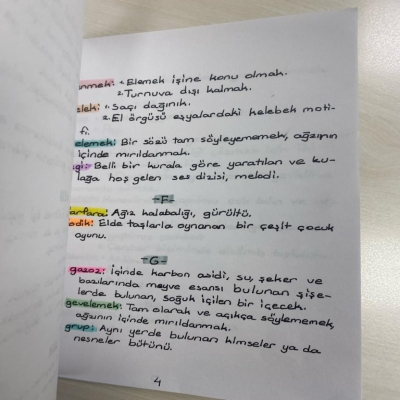 nmek: 1. Elemek işine konu olmak.
2. Turnuva dışı kalmak.
elek: 1. Saçı dağınık.
2. El örgüsü eşyalardaki kelebek moti-
fi.
elemek: Bir sözü tam söyleyememek, ağzının
içinde mırıldanmak.
gi: Belli bir kurala göre yaratılan ve ku-
lağa hoş gelen ses dizisi, melodi.
-F-
arfara: Ağız kalabalığı, gürültü.
odik: Elde taşlarla oynanan bir çeşit çocuk
oyunu.
-G-
gazoz: İçinde karbon asidi, su, şeker ve
bazılarında meyve esansı bulunan şişe-
lerde bulunan, soğuk içilen bir içecek.
gevelemek: Tam olarak ve açıkça söylememek,
ağzının içinde mırıldanmak.
grup: Aynı yerde bulunan kimseler ya da
nesneler bütünü.
4